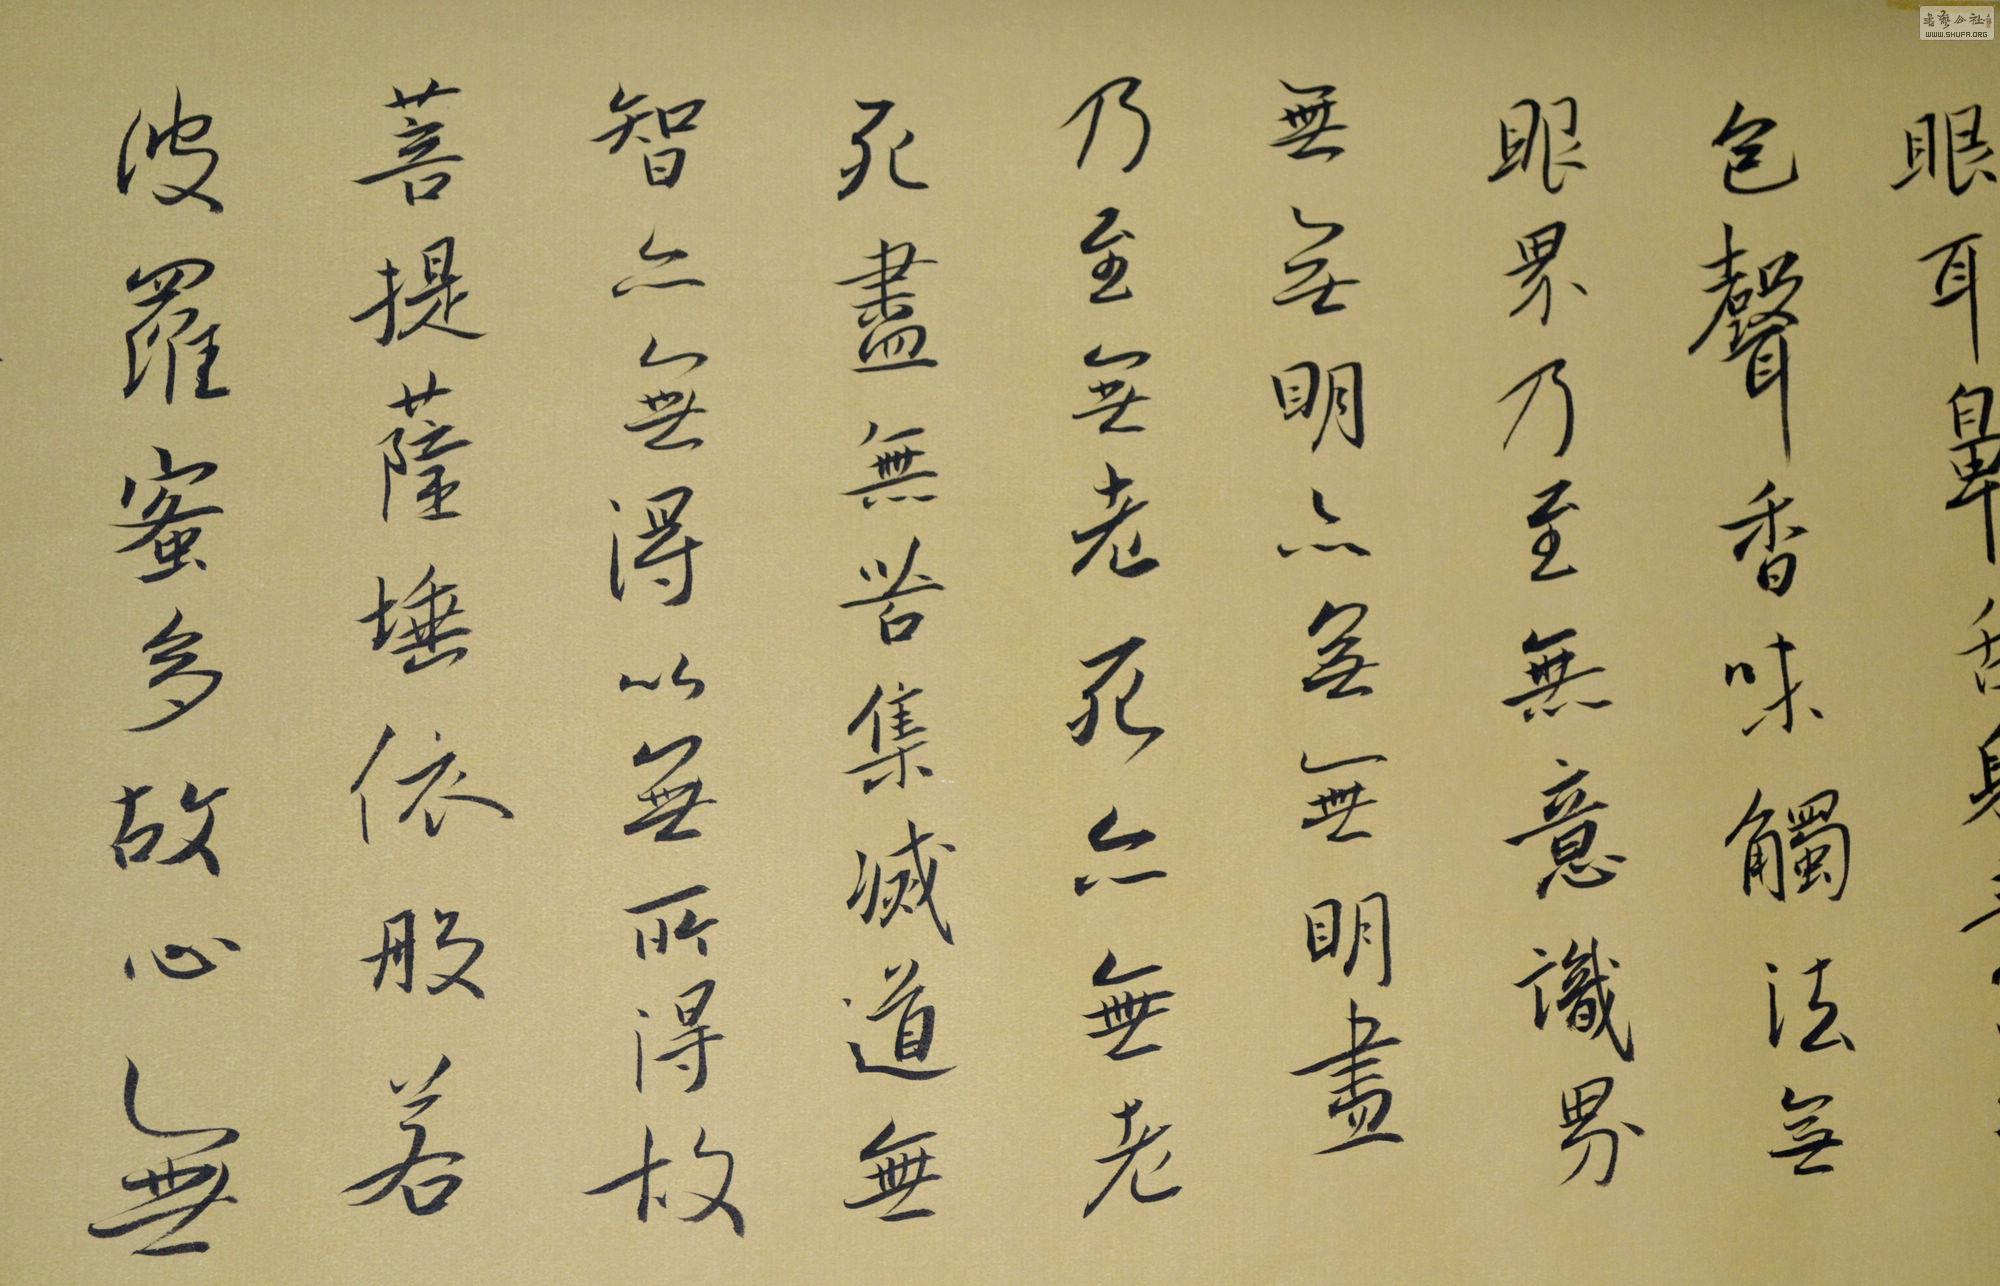 眼耳鼻舌身
色聲香味觸法無
眼界乃至無意識界
無無明亦無無明盡
乃至無老死亦無老
死盡無苦集滅道無
智亦無得以無所得故
菩提薩埵依般若
波羅蜜多故心無
书艺公社
WWW.SHUFA.ORG